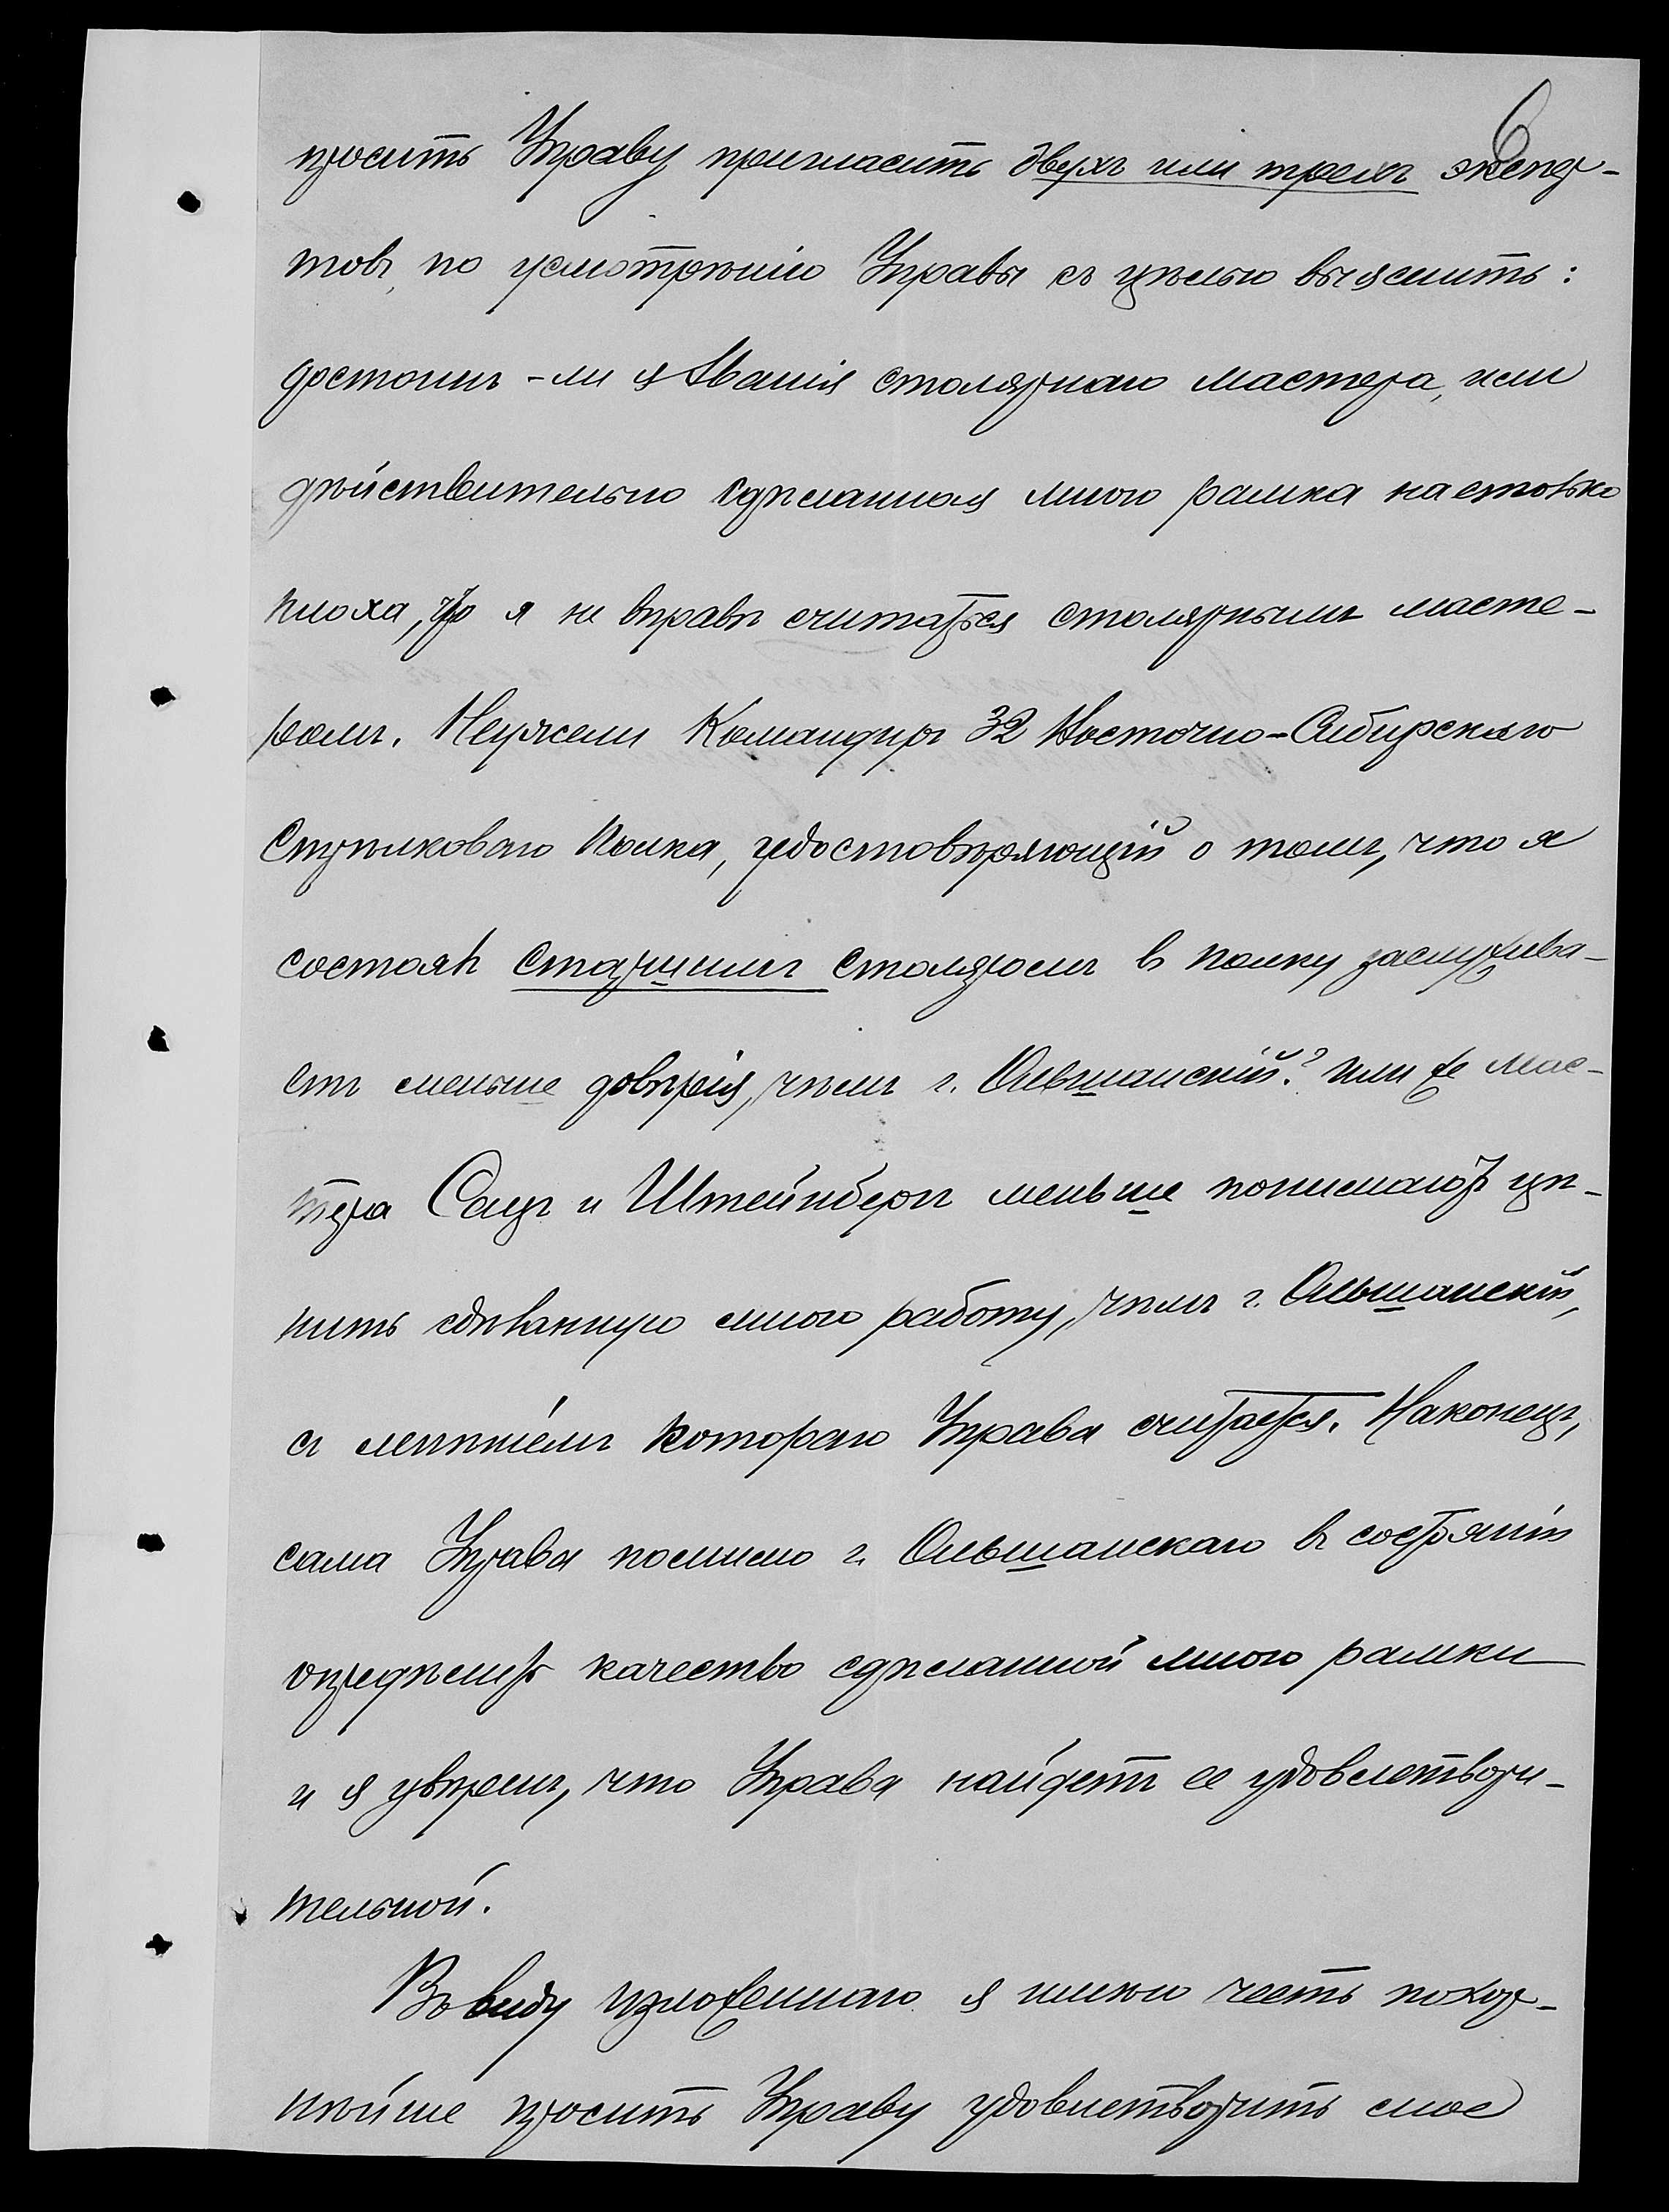 6
просить Управу пригласить двухъ или трехъ экспер-
товъ, по усмотрѣнію Управы съ цѣлью выяснить:
достоинъ-ли я Званія столярнаго мастера, или
дѣйствительно сдѣланная мною рамка настолько
плоха, что я не вправѣ считаться столярнымъ масте-
ромъ. Неужели Командиръ 32 Восточно-Сибирскаго
Стрѣлковаго Полка, удостовѣряющій о томъ, что я
состоялъ старшимъ столяромъ въ полку заслужива-
етъ меньше довѣрія, чѣмъ г. Ольшанскій? или же мас-
тера Сацъ и Штейнбергъ меньше понимаютъ цѣ-
нить сдѣланную мною работу, чѣмъ г. Ольшанскій,
съ мнѣніемъ котораго Управа считается. Наконецъ,
сама Управа помимо г. Ольшанскаго въ состояніи
опредѣлить качество сдѣланной мною рамки
и я увѣренъ, что Управа найдетъ ее удовлетвори-
тельной.
Въ виду изложеннаго я имѣю честь покор-
нѣйше просить Управу удовлетворить мое